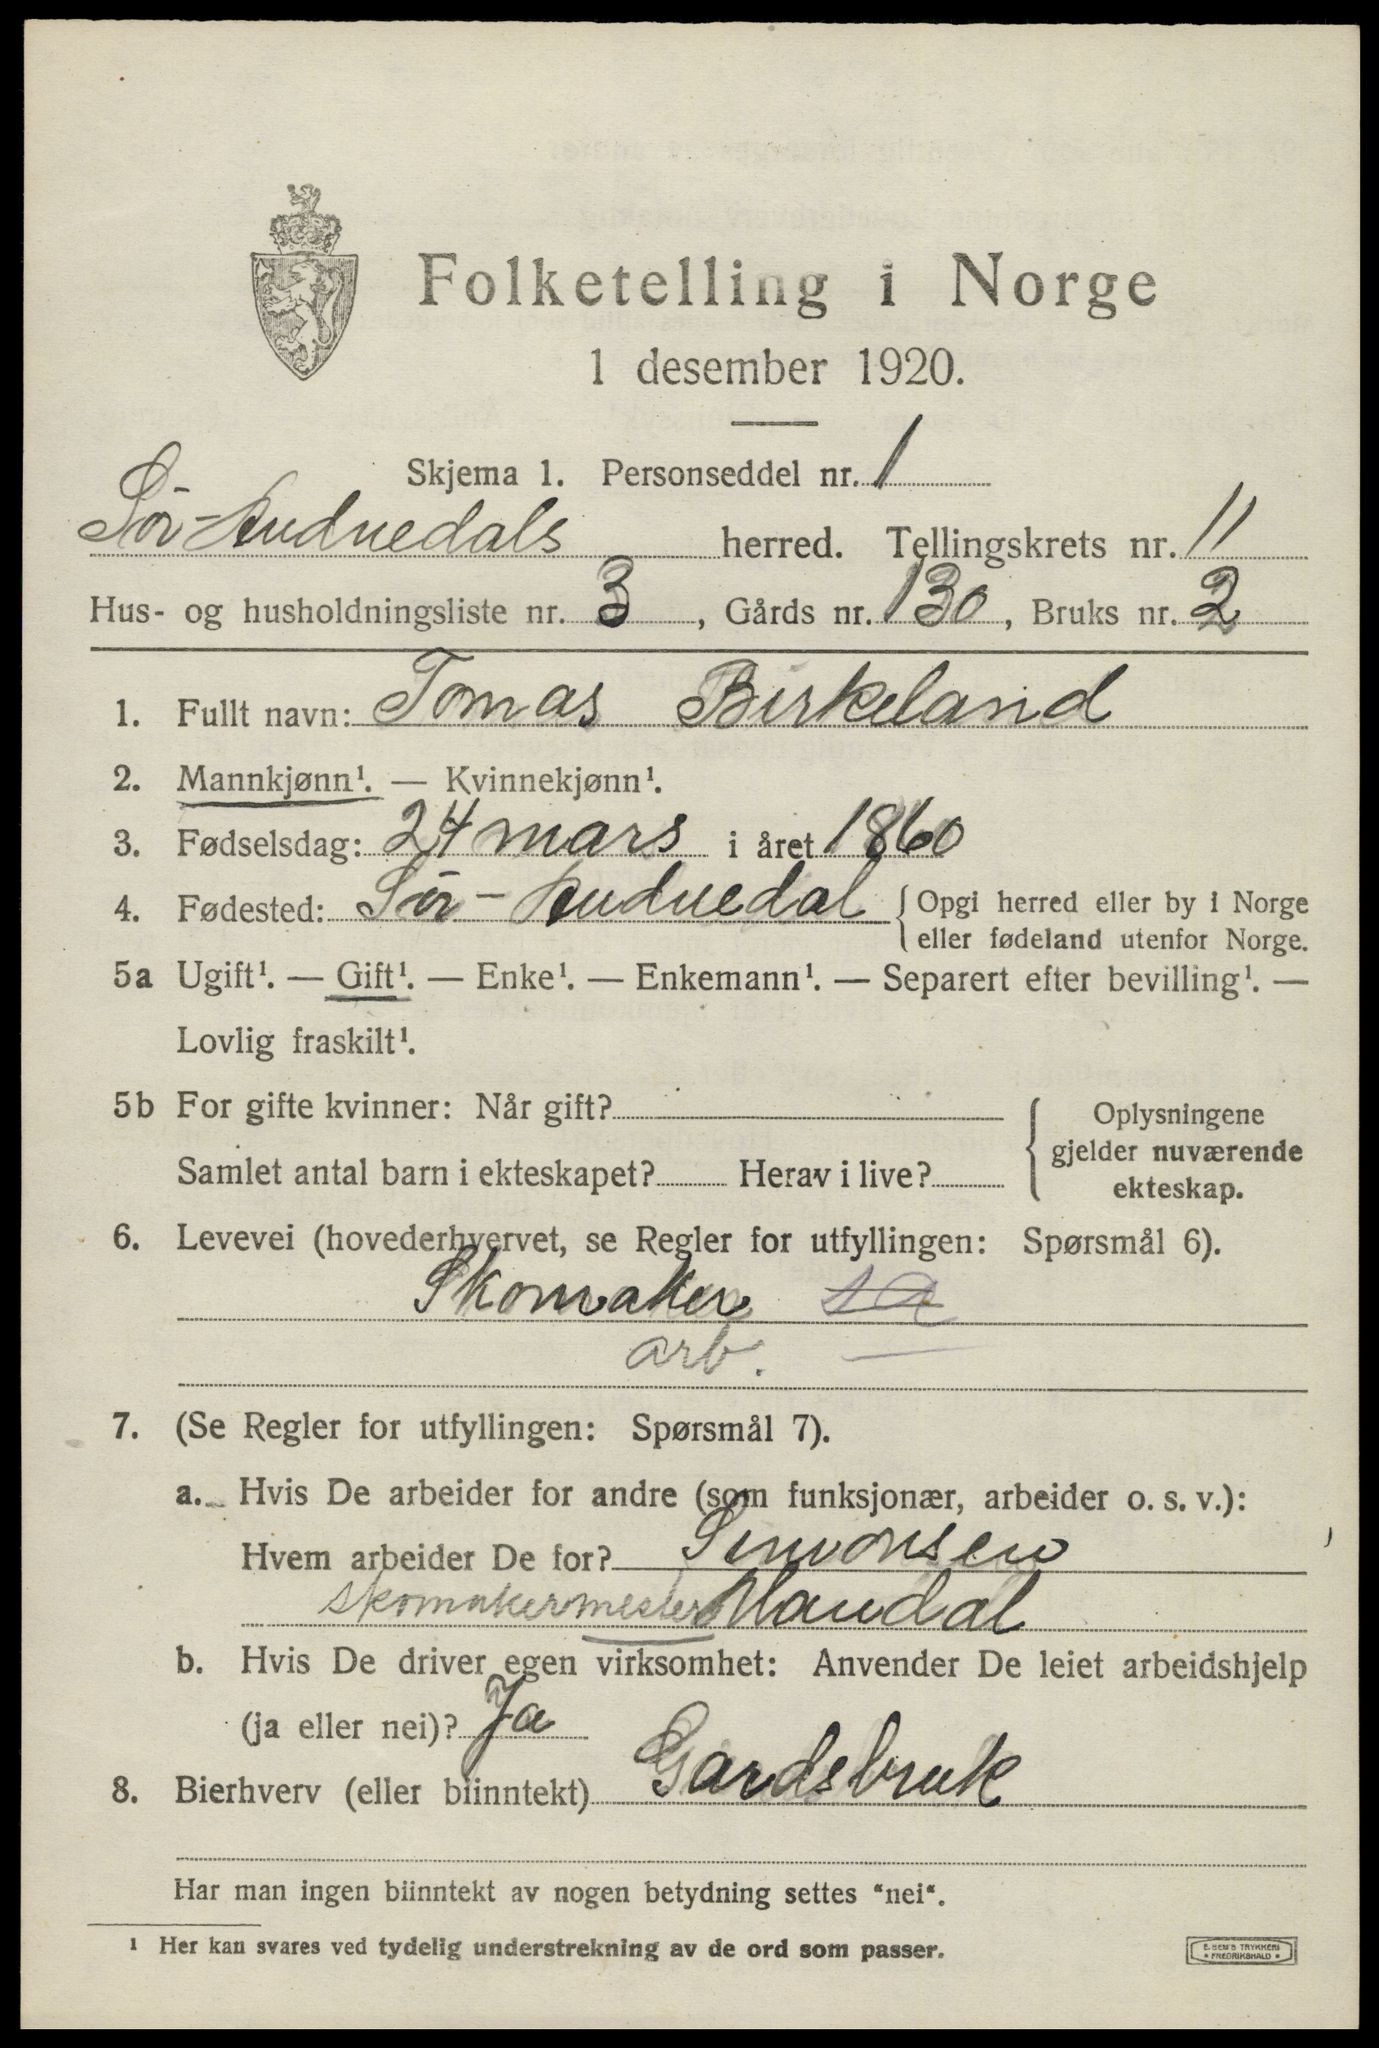 Folketelling i Norge
1 desember 1920.
Skjema 1. Personseddel nr. 1
Sør-Audnedals herred. Tellingskrets nr. 11
Hus- og husholdningsliste nr. 3, Gårds nr. 130, Bruks nr. 2
1. Fullt navn: Tomas Birkeland
2. Mannkjønn¹. — Kvinnekjønn¹.
3. Fødselsdag: 24 mars i året 1860
4. Fødested: Sør-Audnedal { Opgi herred eller by i Norge
eller fødeland utenfor Norge.
5a Ugift¹. — Gift¹. — Enke¹. — Enkemann¹. — Separert efter bevilling¹. —
Lovlig fraskilt¹.
5b For gifte kvinner: Når gift?
Samlet antal barn i ekteskapet? Herav i live?
{ Oplysningene
gjelder nuværende
ekteskap.
6. Levevei (hovederhvervet, se Regler for utfyllingen: Spørsmål 6).
Skomaker
arb.
7. (Se Regler for utfyllingen: Spørsmål 7).
a. Hvis De arbeider for andre (som funksjonær, arbeider o. s. v.):
Hvem arbeider De for? Simonsen
skomakermester Mandal
b. Hvis De driver egen virksomhet: Anvender De leiet arbeidshjelp
(ja eller nei)? Ja
8. Bierhverv (eller biinntekt) Gardsbruk
Har man ingen biinntekt av nogen betydning settes "nei".
¹ Her kan svares ved tydelig understrekning av de ord som passer.
E. SEM'S TRYKKERI
• FREDRIKSHALD •